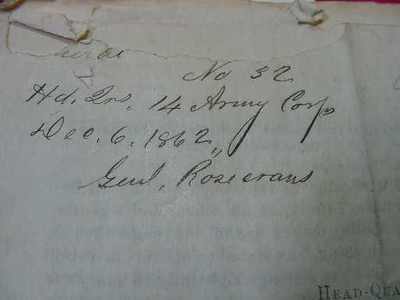 No 32
Hd. Qrs. 14 Army Corp
Dec. 6. 1862,,
Genl, Rosecrans
HEAD-QUA